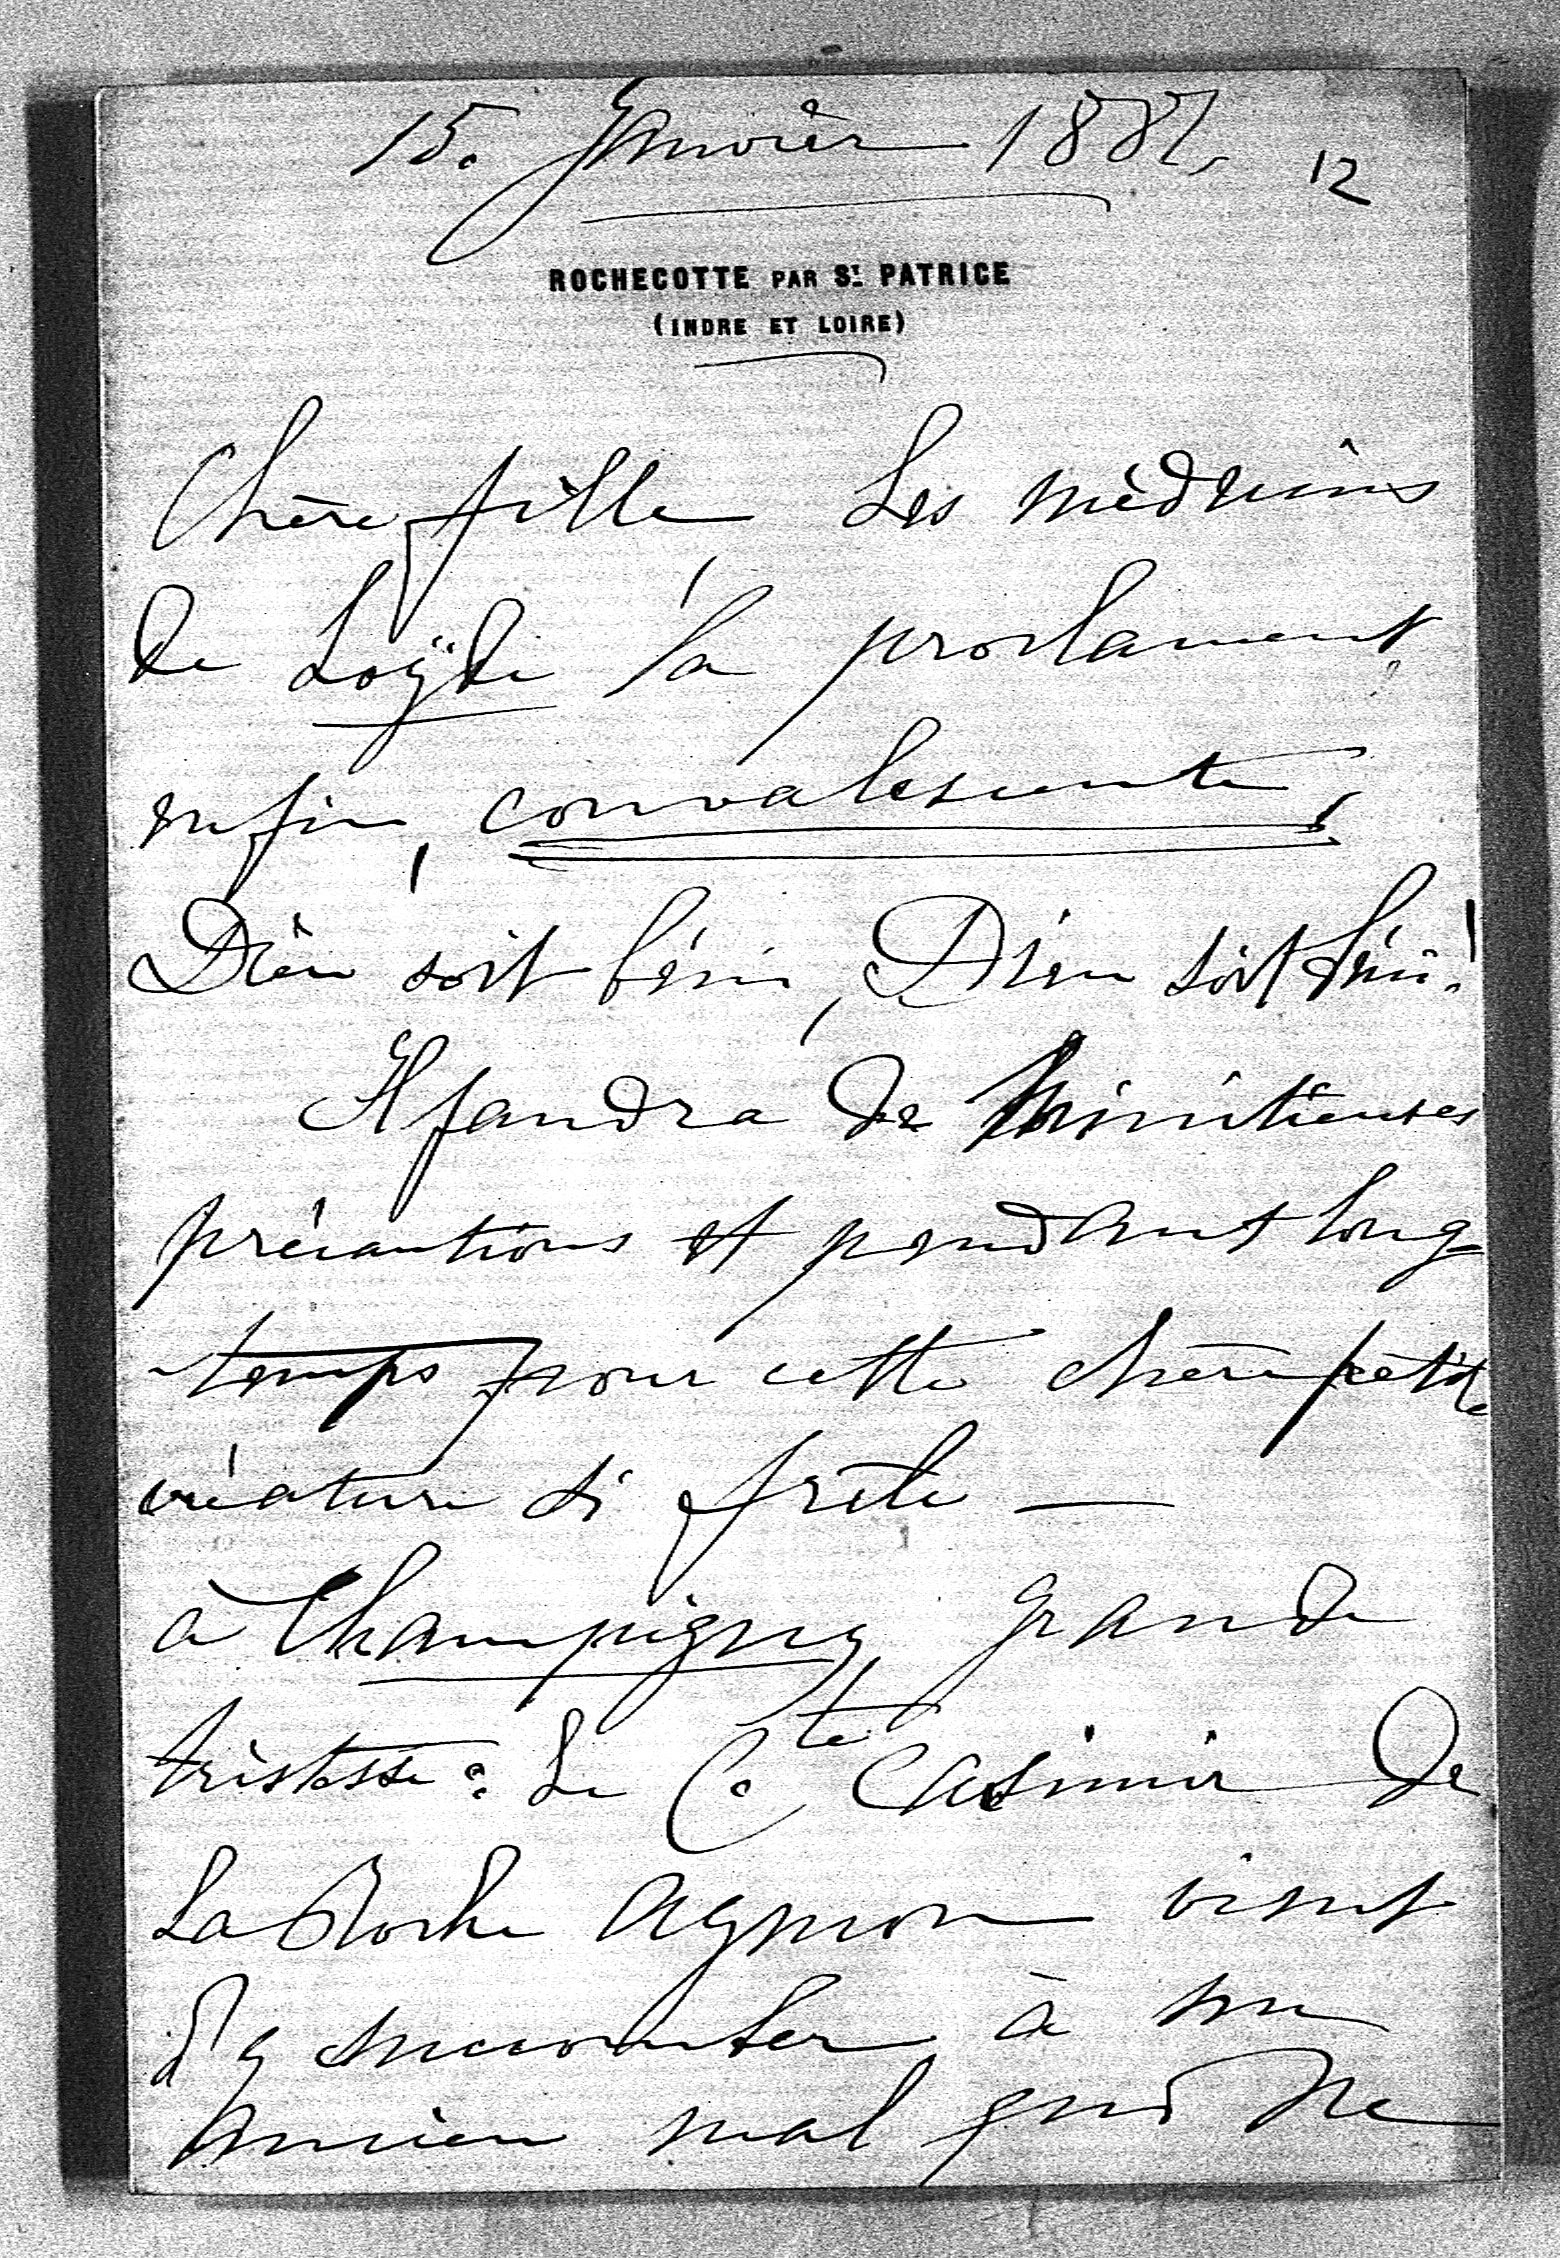 15. Janvier 1887.
12
ROCHECOTTE PAR ST PATRICE
(INDRE ET LOIRE)
Chère fille, Les médecins
de Loÿde la proclament
enfin, convalescente,
Dieu soit béni, Dieu soit béni!
Il faudra de minutieuses
précautions et pendant long
temps pour cette chère petite
créature si frêle —
à Champigny grande
tristesse: le Cte Casimir de
La Roche Aymon vient
d'y succomber à un
ancien mal qui ne